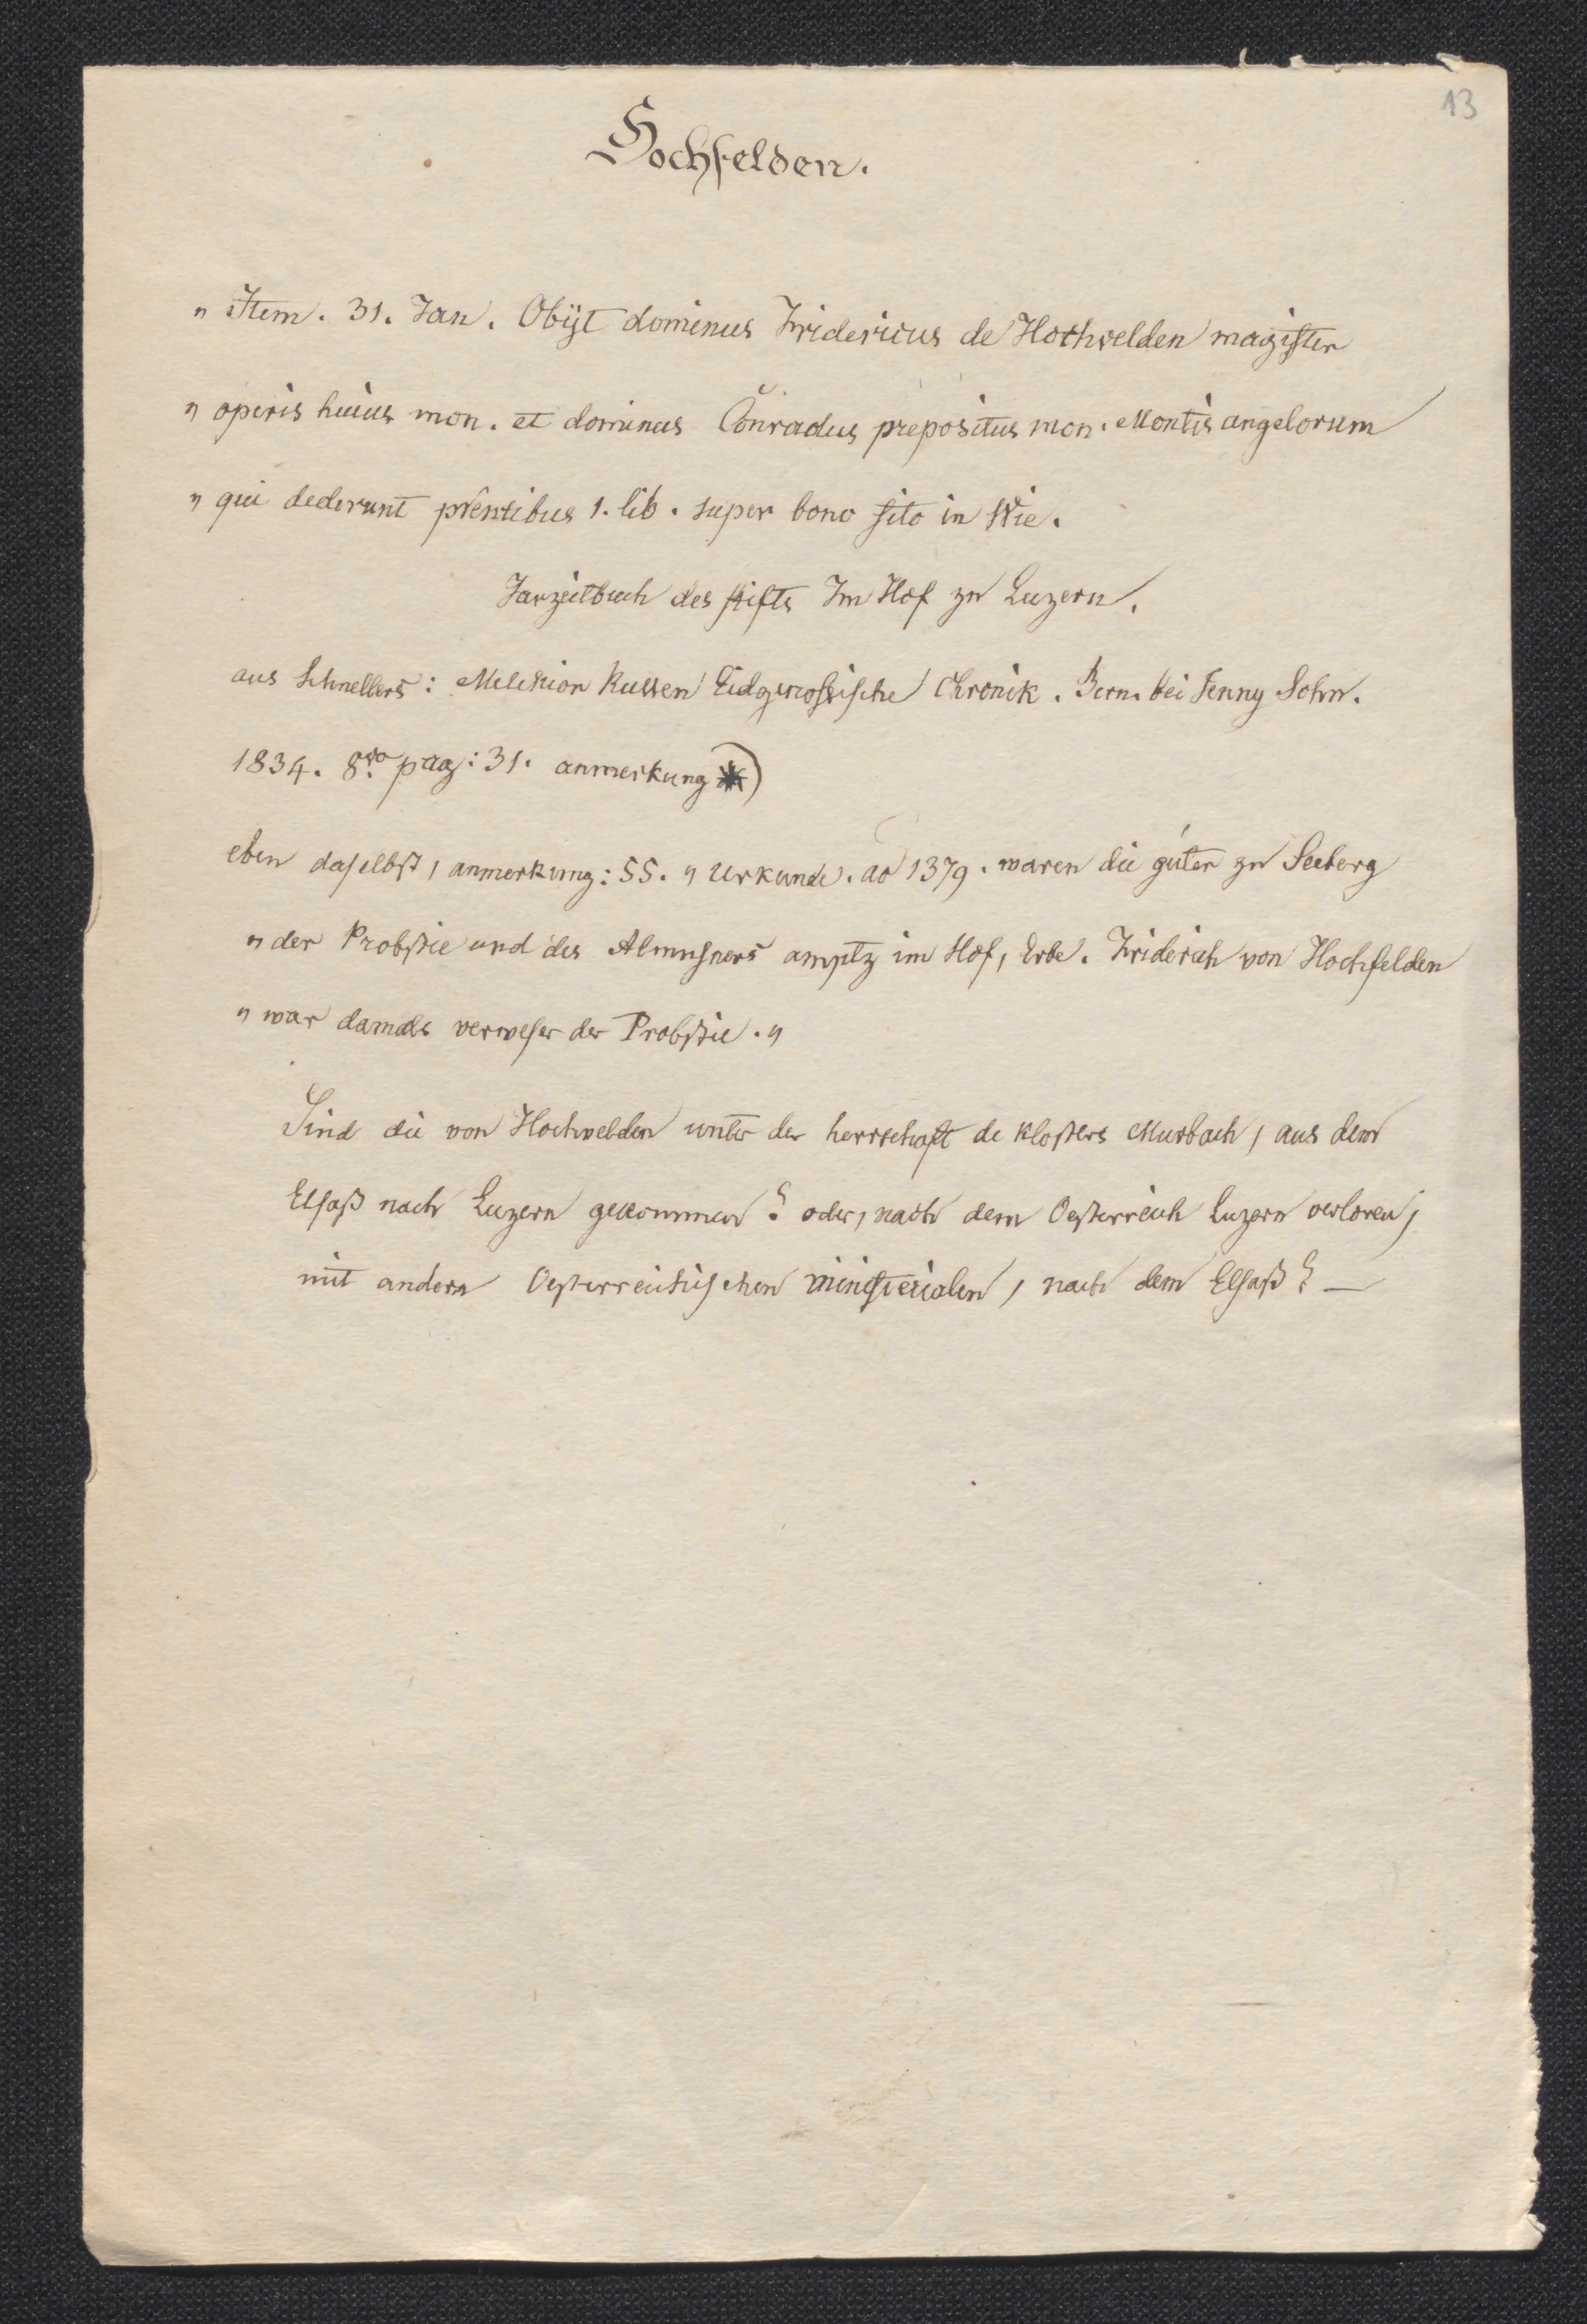 13
Hochfelden.
" Item. 31. Jan. Obijt dominus Fridericus de Hochvelden magister
" operis huius mon. et dominus Cŏnradus prepositus mon. Montis angelorum
" qui dederunt pr̄entibus 1. lib. super bono sito in Wie.
Jarzeitbuch des stifts Im Hof zu Luzern.
aus Schnellers: Melchior Russen Eidgenossische Chronik. Bern. bei Jenny Sohn.
1834. 8vo pag: 31. anmerkung *)
eben daselbst, anmerkung: 55. " Urkunde. ao 1379. waren die güter zu Seeberg
" der Probstie und des Almusners amptz im Hof, Erbe. Friderich von Hochfelden
" war damals verweser der Probstie. "
Sind die von Hochvelden unter der herrschaft de klosters Murbach, aus dem
Elsaß nach Luzern gekommen? oder, nach dem Oesterreich Luzern verloren,
mit andern Oesterreichischen ministerialen, nach dem Elsaß? —